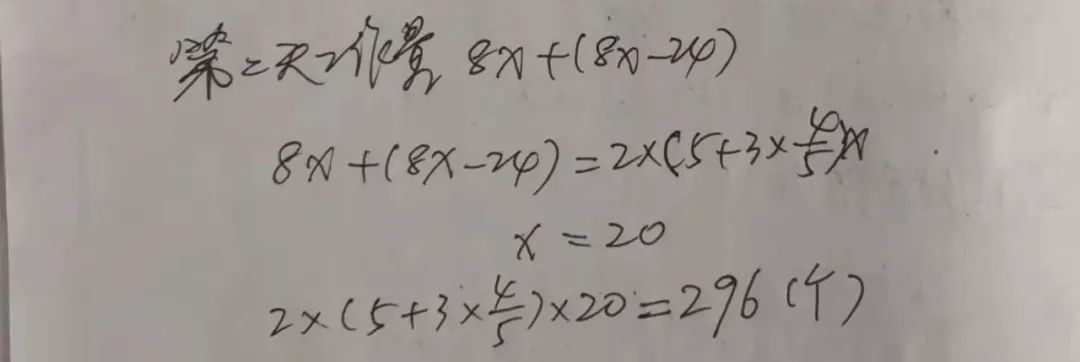 第二天工作量 8x+(8x-24)
8x+(8x-24)=2×(5+3×4/5)x
x=20
2×(5+3×4/5)×20=296(个)